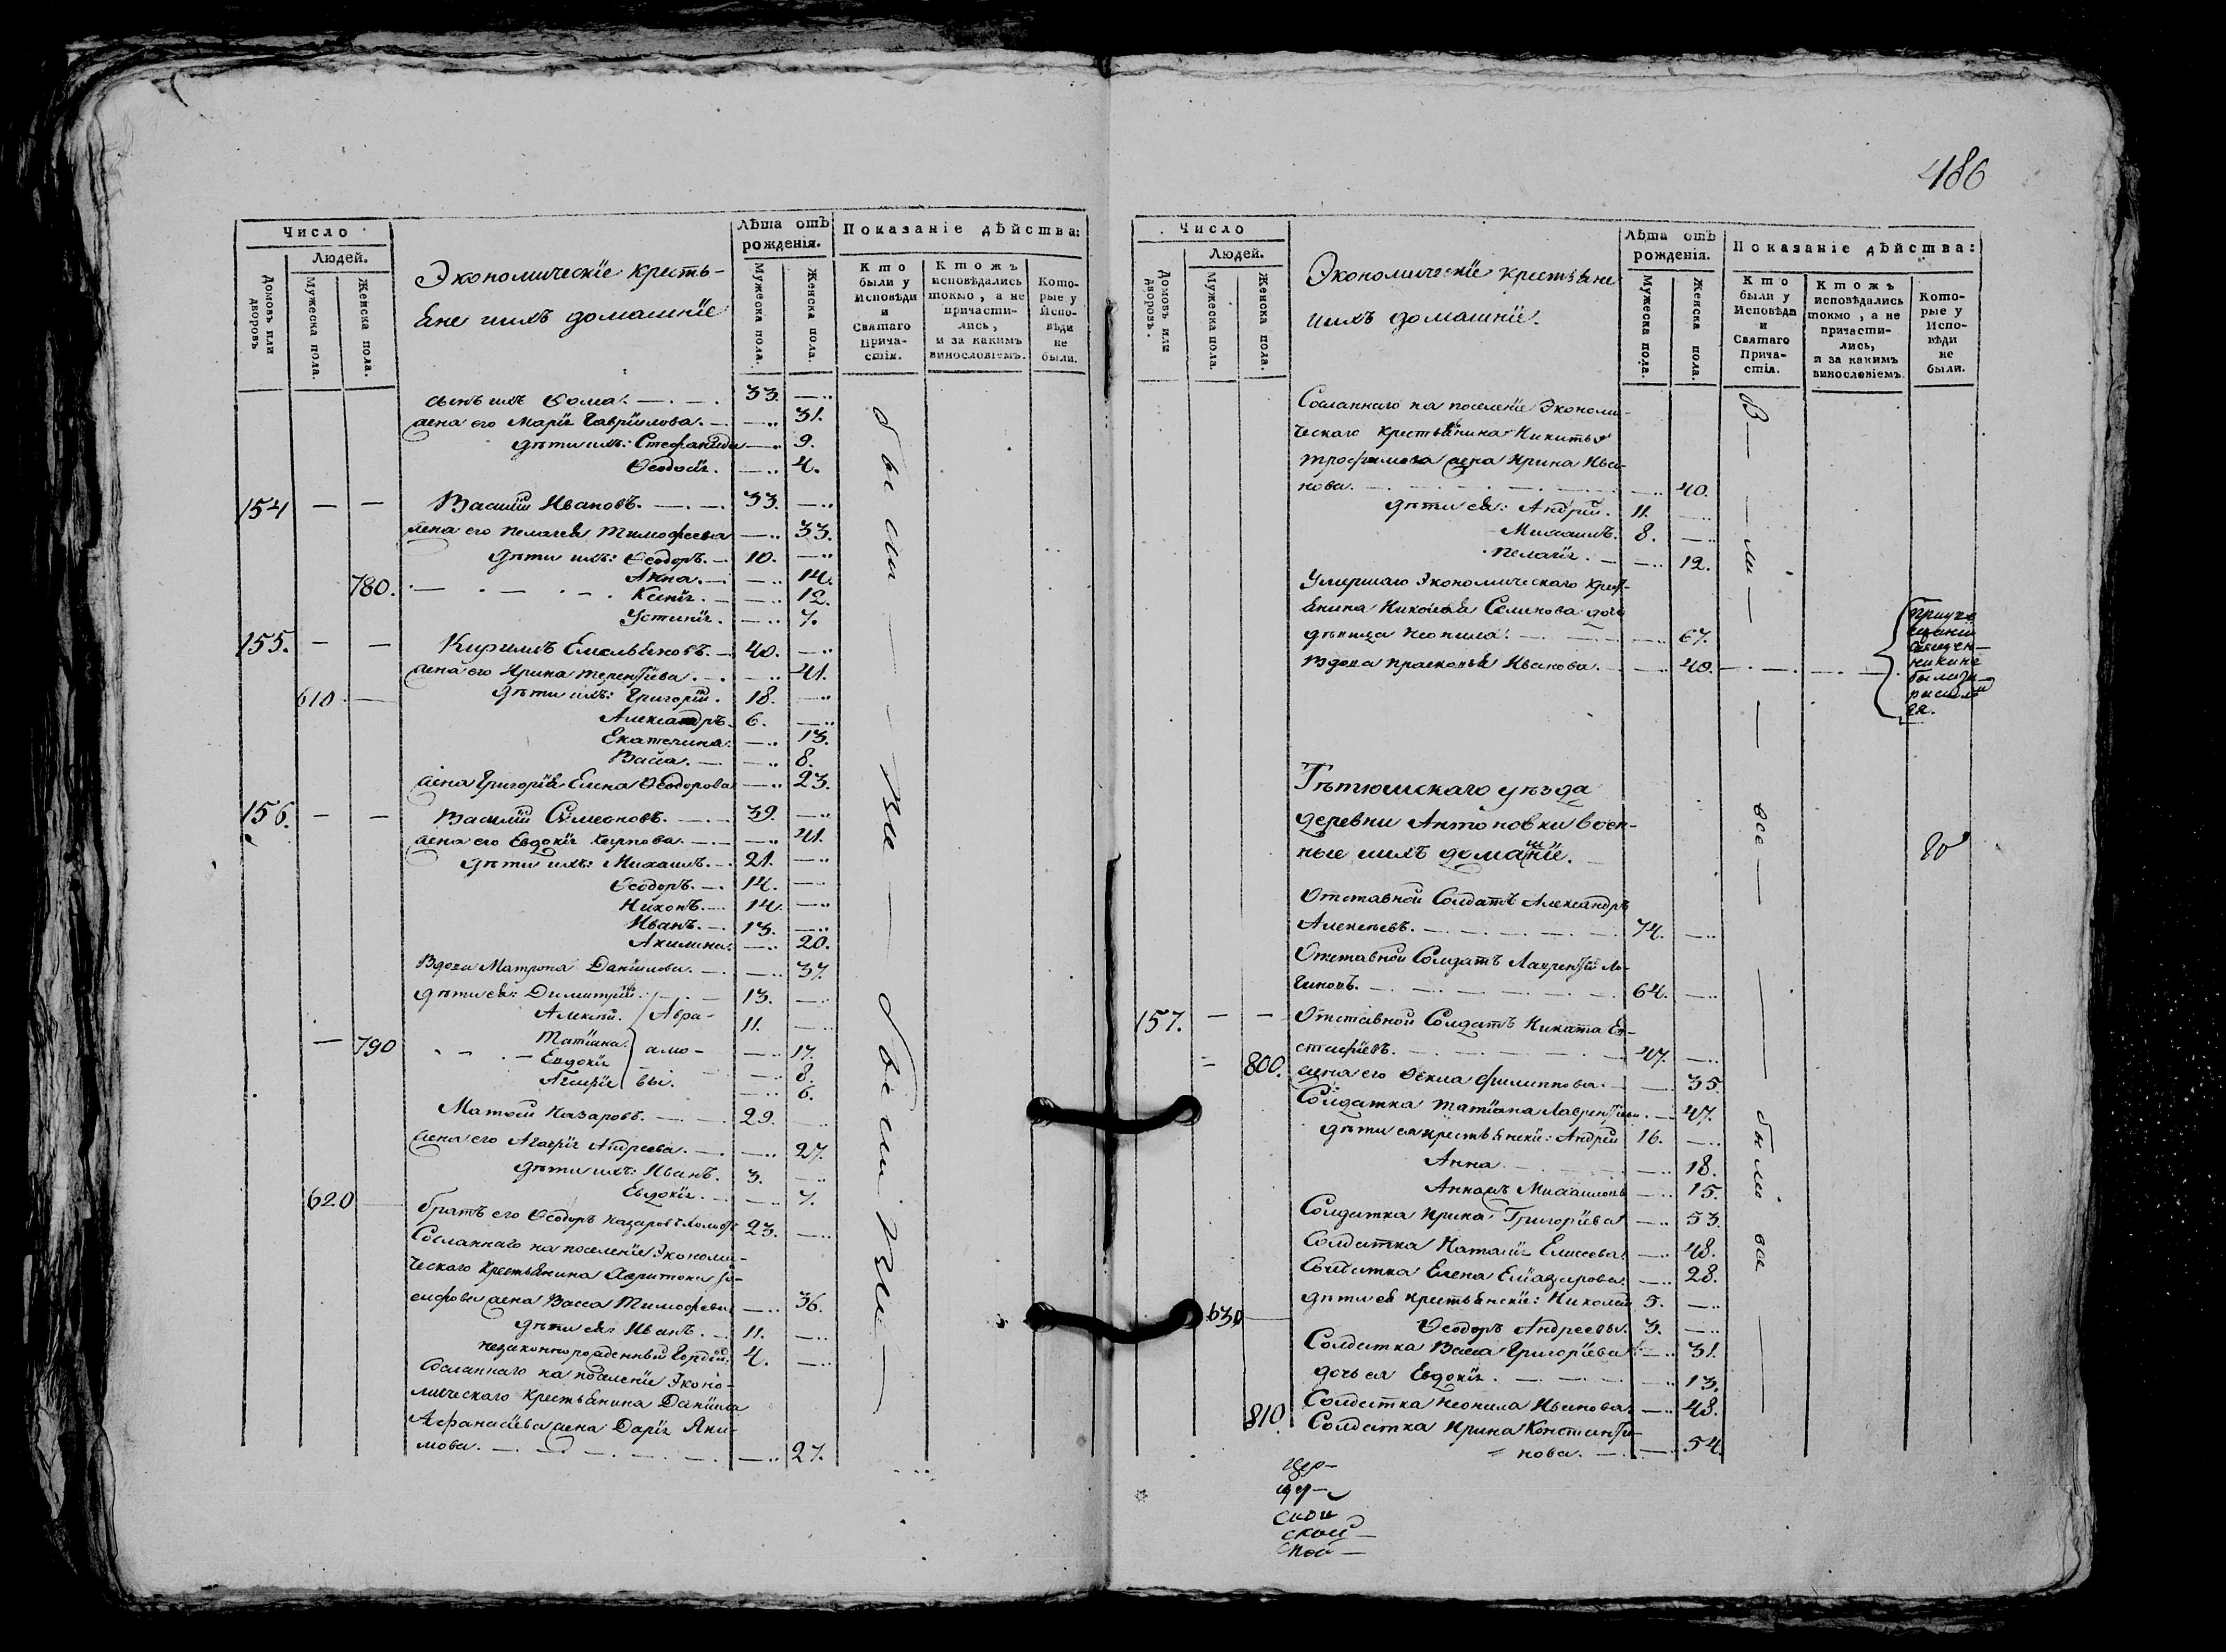 486
Число
Людей.
Домовъ или дворовъ
Мужеска пола.
Женска пола.
Экономическїе кресть-
яне иихъ домашнїе
Лѣта отъ рожденїя.
Мужеска пола.
Женска пола.
Показанїе дѣйства:
Кто были у Исповѣди и Святаго Прича-стїя.
Ктожъ исповѣдались токмо, а не причасти-лись, и за какимъ винословїемъ.
Кото-рые у Испо-вѣди не были.
сынъ ихъ Ѳома. 33.
жена его Марїя Гаврїилова. 31.
дѣти ихъ: Стефанида 9.
Ѳеодосїя. 4.
154 — — Василїй Ивановъ. 33.
жена его Пелагея Тимофеева 33.
дѣти ихъ: Ѳеодоръ. 10.
Анна. 14.
780. Ксенїя. 12.
Устинїя. 7.
155. — — Кирилъ Емельяновъ. 40.
жена его Ирина Терентїева. 41.
610 — дѣти ихъ: Григорїй. 18.
Александръ. 6.
Екатерина. 13.
Васса. 8.
жена Григорїя Елена Ѳеодорова 23.
156. — — Василїй Симеоновъ. 39.
жена его Евдокїя Карпова. 41.
дѣти ихъ: Михаилъ. 21.
Ѳеодоръ. 14.
Никонъ. 14.
Иванъ. 13.
Акилина. 20.
Вдова Матрона Данїилова. 37.
дѣти ея: Димитрїй. 13.
Алексѣй. Авра- 11.
— 790 Татїана амо- 17.
Евдокїя 8.
Агафїя вы. 6.
Матѳей Назаровъ. 29.
жена его Агафїя Андреева. 27.
дѣти ихъ: Иванъ. 3.
620 Евдокїя. 7.
братъ его Ѳеодоръ Назаровъ 23.
Сосланнаго на поселенїе Экономи-
ческаго крестьянина Харитона Їо-
сифова жена Васса Тимофеева 36.
дѣти ея: Иванъ. 11.
незаконнорожденный Гордѣй. 4.
Сосланнаго на поселенїе Эконо-
мическаго крестьянина Данїила
Афанасїева жена Дарїя Яки-
мова. 27.
были — всѣ — были всѣ
Число
Людей.
Домовъ или дворовъ.
Мужеска пола.
Женска пола.
Экономическїе крестьяне
иихъ домашнїе.
Лѣта отъ рожденїя.
Мужеска пола.
Женска пола.
Показанїе дѣйства:
Кто были у Исповѣди и Святаго Прича-стїя.
Ктожъ исповѣдались токмо, а не причасти-лись, и за какимъ винословїемъ.
Кото-рые у Испо-вѣди не были.
Сосланнаго на поселенїе Экономи-
ческаго крестьянина Никиты
Трофимова жена Ирина Ива-
нова. 40.
дѣти ея: Андрей. 11.
Михаилъ. 8.
Пелагїя. 12.
Умершаго Экономическаго крест-
янина Николая Семенова дочь
дѣвица Неонила. 67.
Вдова Прасковья Иванова. 40.
Тѣтюшскаго уѣзда
деревни Антоновки воен-
ные иихъ домашнїе.
Отставной Солдатъ Александръ
Алексѣевъ. 74.
Отставной Солдатъ Лаврентїй Ло-
гиновъ. 64.
157. — — Отставной Солдатъ Никита Ев-
стафїевъ. 47.
800. жена его Ѳекла Филиппова. 35.
Солдатка Татїана Лаврентїева. 47.
дѣти ея крестьянскїе: Андрей 16.
Анна 18.
Анна жъ Михаиловы 15.
Солдатка Ирина Григорїева 53.
Солдатка Наталїя Елисеева 48.
Солдатка Елена Елїазарова 28.
дѣти ея крестьянскїе: Николай 5.
630 — Ѳеодоръ Андреевы. 3.
Солдатка Васса Григорїева 31.
дочь ея Евдокїя. 13.
Солдатка Неонила Иванова 48.
810. Солдатка Ирина Константи-
нова. 54.
всѣ — были всѣ
цер-
ской
ской —